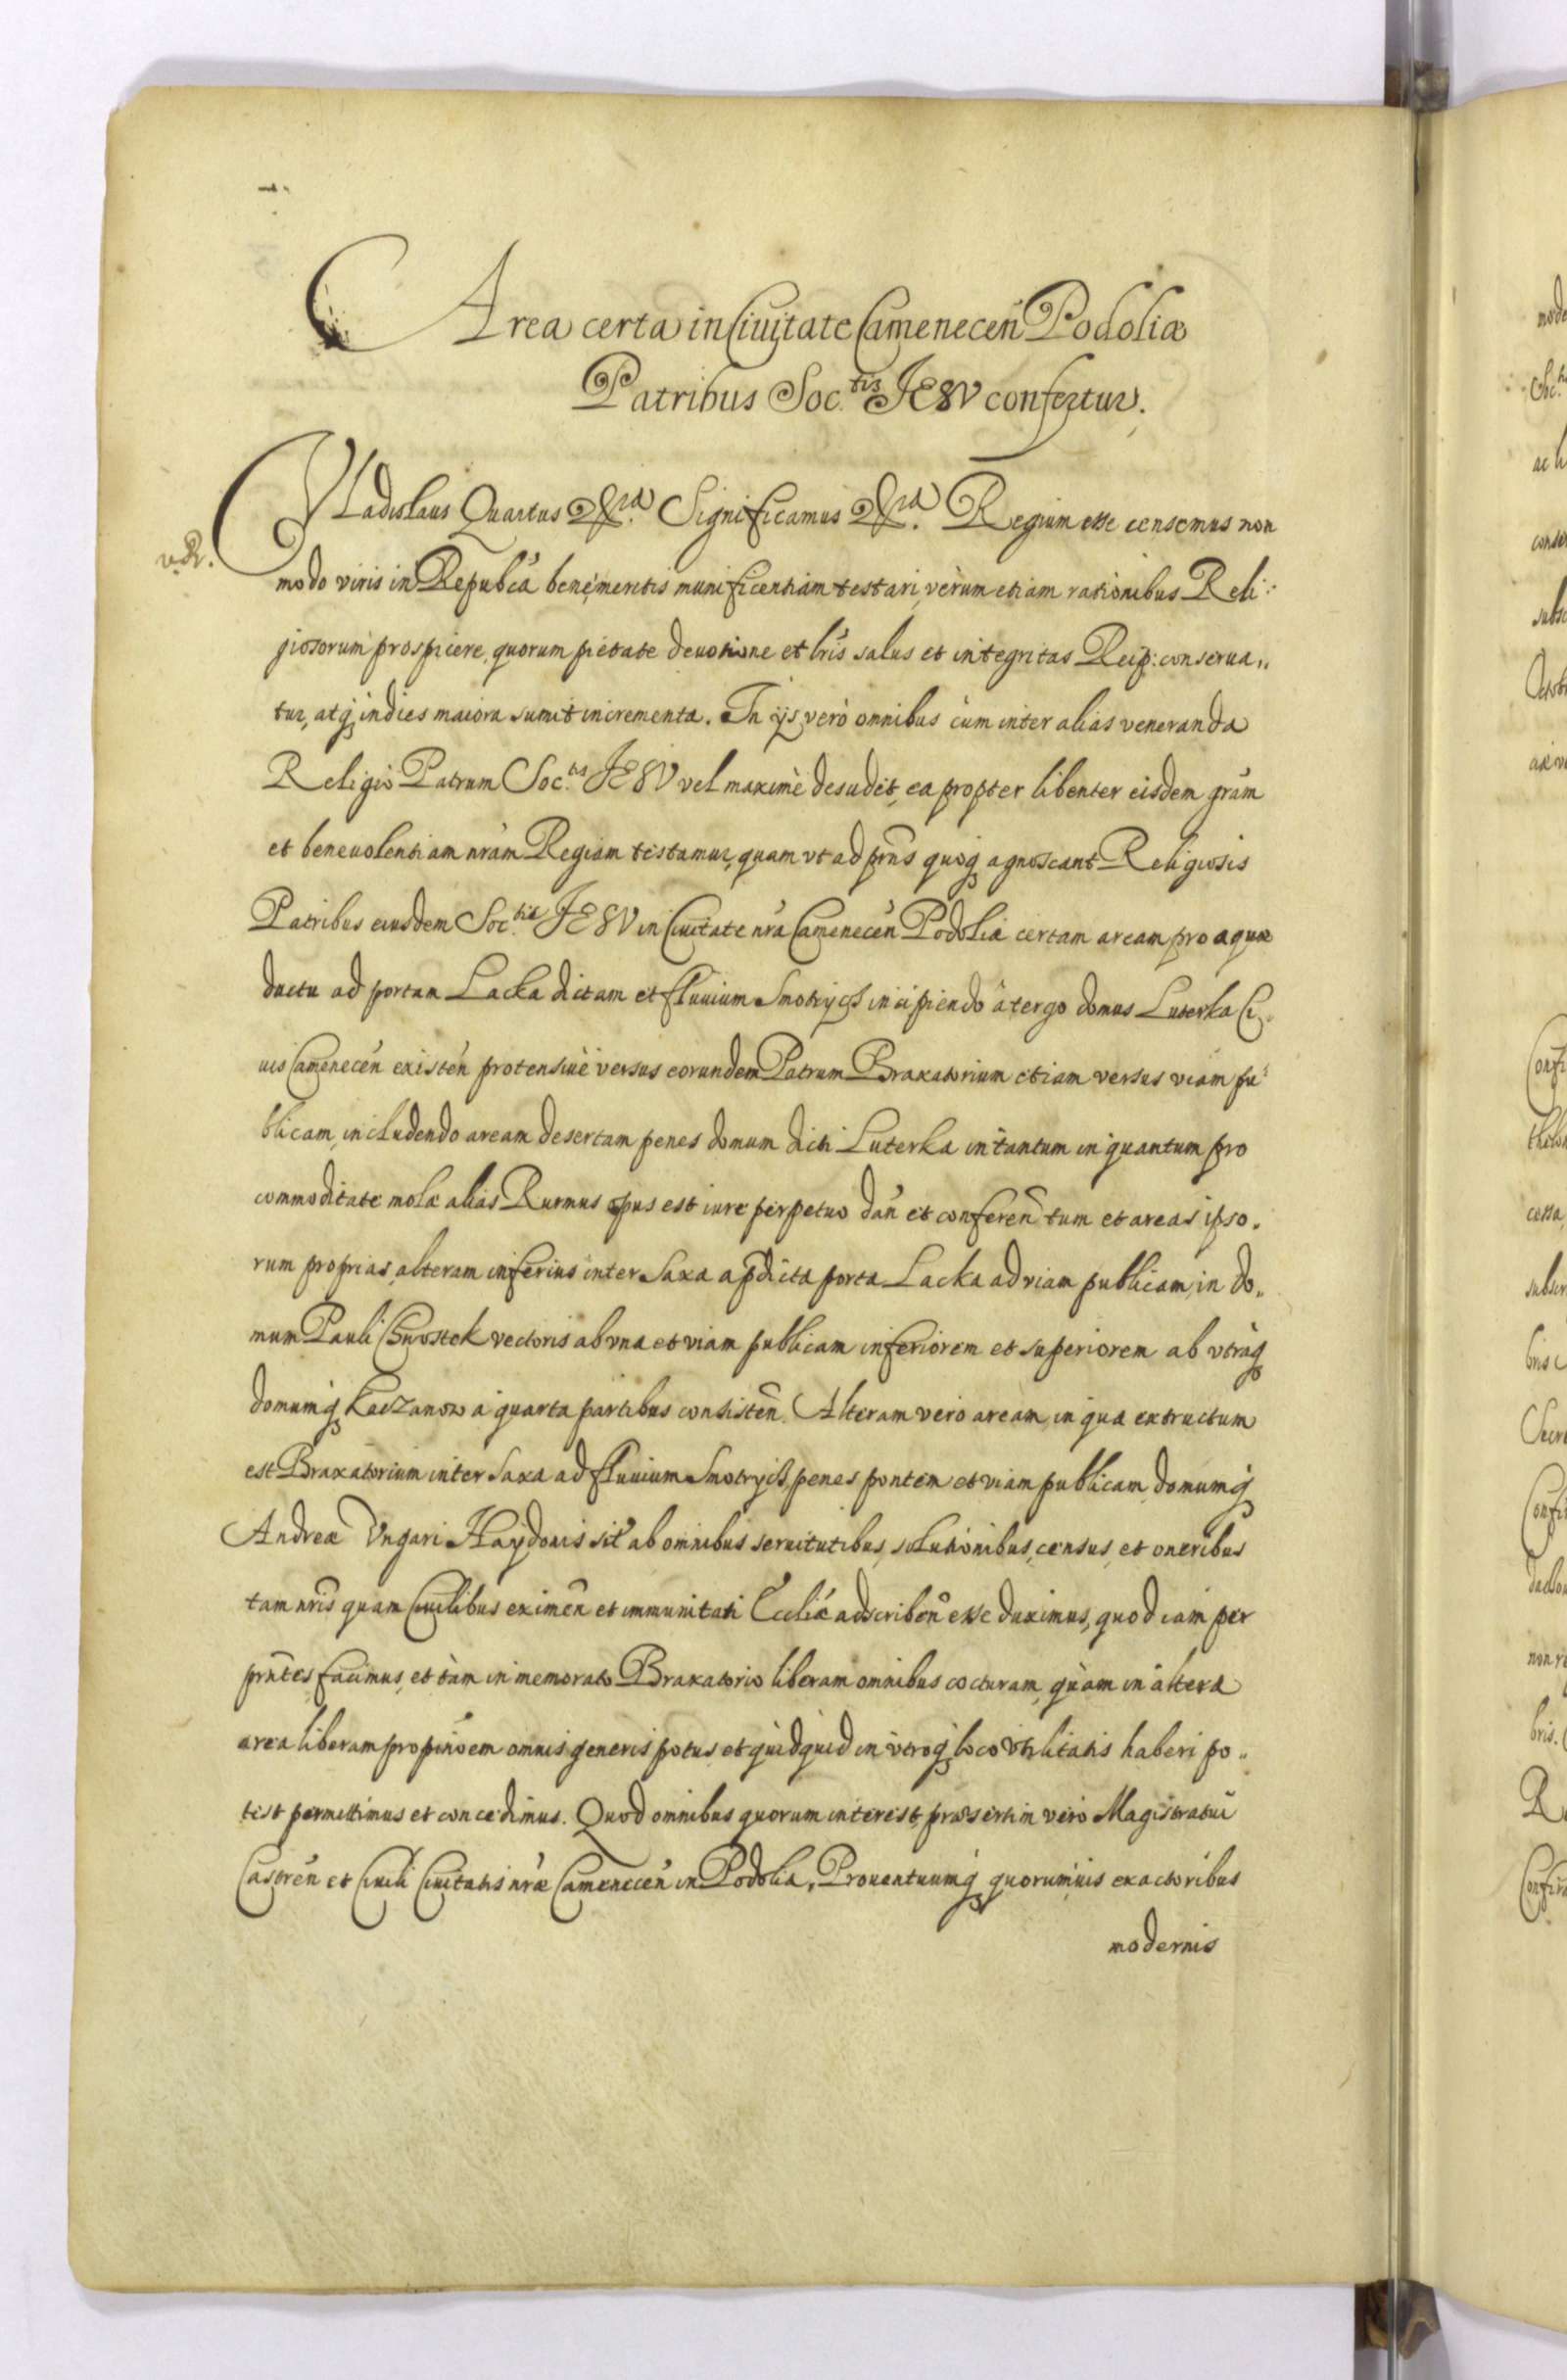 Area certa in Ciuitate Camenecen̄ Podoliæ
Patribus Soc.tis JESV confertur.
Vladislaus Quartus &ra. Significamus &ra. Regium esse censemus non
modo viris in Repub̄ca benemeritis munificentiam testari, verùm etiam rationibus Reli:
giosorum prospicere, quorum pietate deuotione et lr̄is salus et integritas Reip: conserua„
tur, atq indies maiora sumit incrementa. In ijs verò omnibus cùm inter alias veneranda
Religio Patrum Soc.tis JESV vel maximè desudet, ea propter libenter eisdem gr̄am
et beneuolentiam nr̄am Regiam testamur, quam vt ad prn̄s quoq agnoscant Religiosis
Patribus eiusdem Soc.tis JESV in Ciuitate nr̄a Camenecen̄ Podoliæ certam aream pro aquæ
ductu ad portam Lacka dictam et fluuium Smotrycz incipiendo à tergo domus Luterka Ci„
uis Camenecen̄ existen̄ protensiuè versus eorundem Patrum Braxatorium etiam versus viam pu:
blicam, includendo aream desertam penes domum dicti Luterka in tantum in quantum pro
commoditate molæ alias Rurmus opus est iure perpetuo dan̄ et conferen̄ tum et areas ipso„
rum proprias, alteram inferius inter saxa a p̄dicta porta Lacka ad viam publicam, in do„
mum Pauli Chwostek vectoris ab vna et viam publicam inferiorem et superiorem ab vtraq
domumq Kaczanow a quarta partibus consisten̄. Alteram vero aream, in qua extructum
est Braxatorium inter saxa ad fluuium Smotrycz, penes pontem et viam publicam, domumq
Andreæ Vngari Haydonis sit̄ ab omnibus seruitutibus, solutionibus, census, et oneribus
tam nr̄is quam Ciuilibus eximen̄ et immunitati Eccliæ adscriben̄ esse duximus, quod iam per
prn̄tes facimus, et tàm in memorato Braxatorio liberam omnibus cocturam, quàm in altera
area liberam propinōem omnis generis potus, et quidquid in vtroq loco vtilitatis haberi po„
test permittimus et concedimus. Quod omnibus quorum interest, præsertim vero Magistratui
Castren̄ et Ciuili Ciuitatis nr̄æ Camenecen̄ in Podolia, Prouentuumq quorumuis exactoribus
modernis